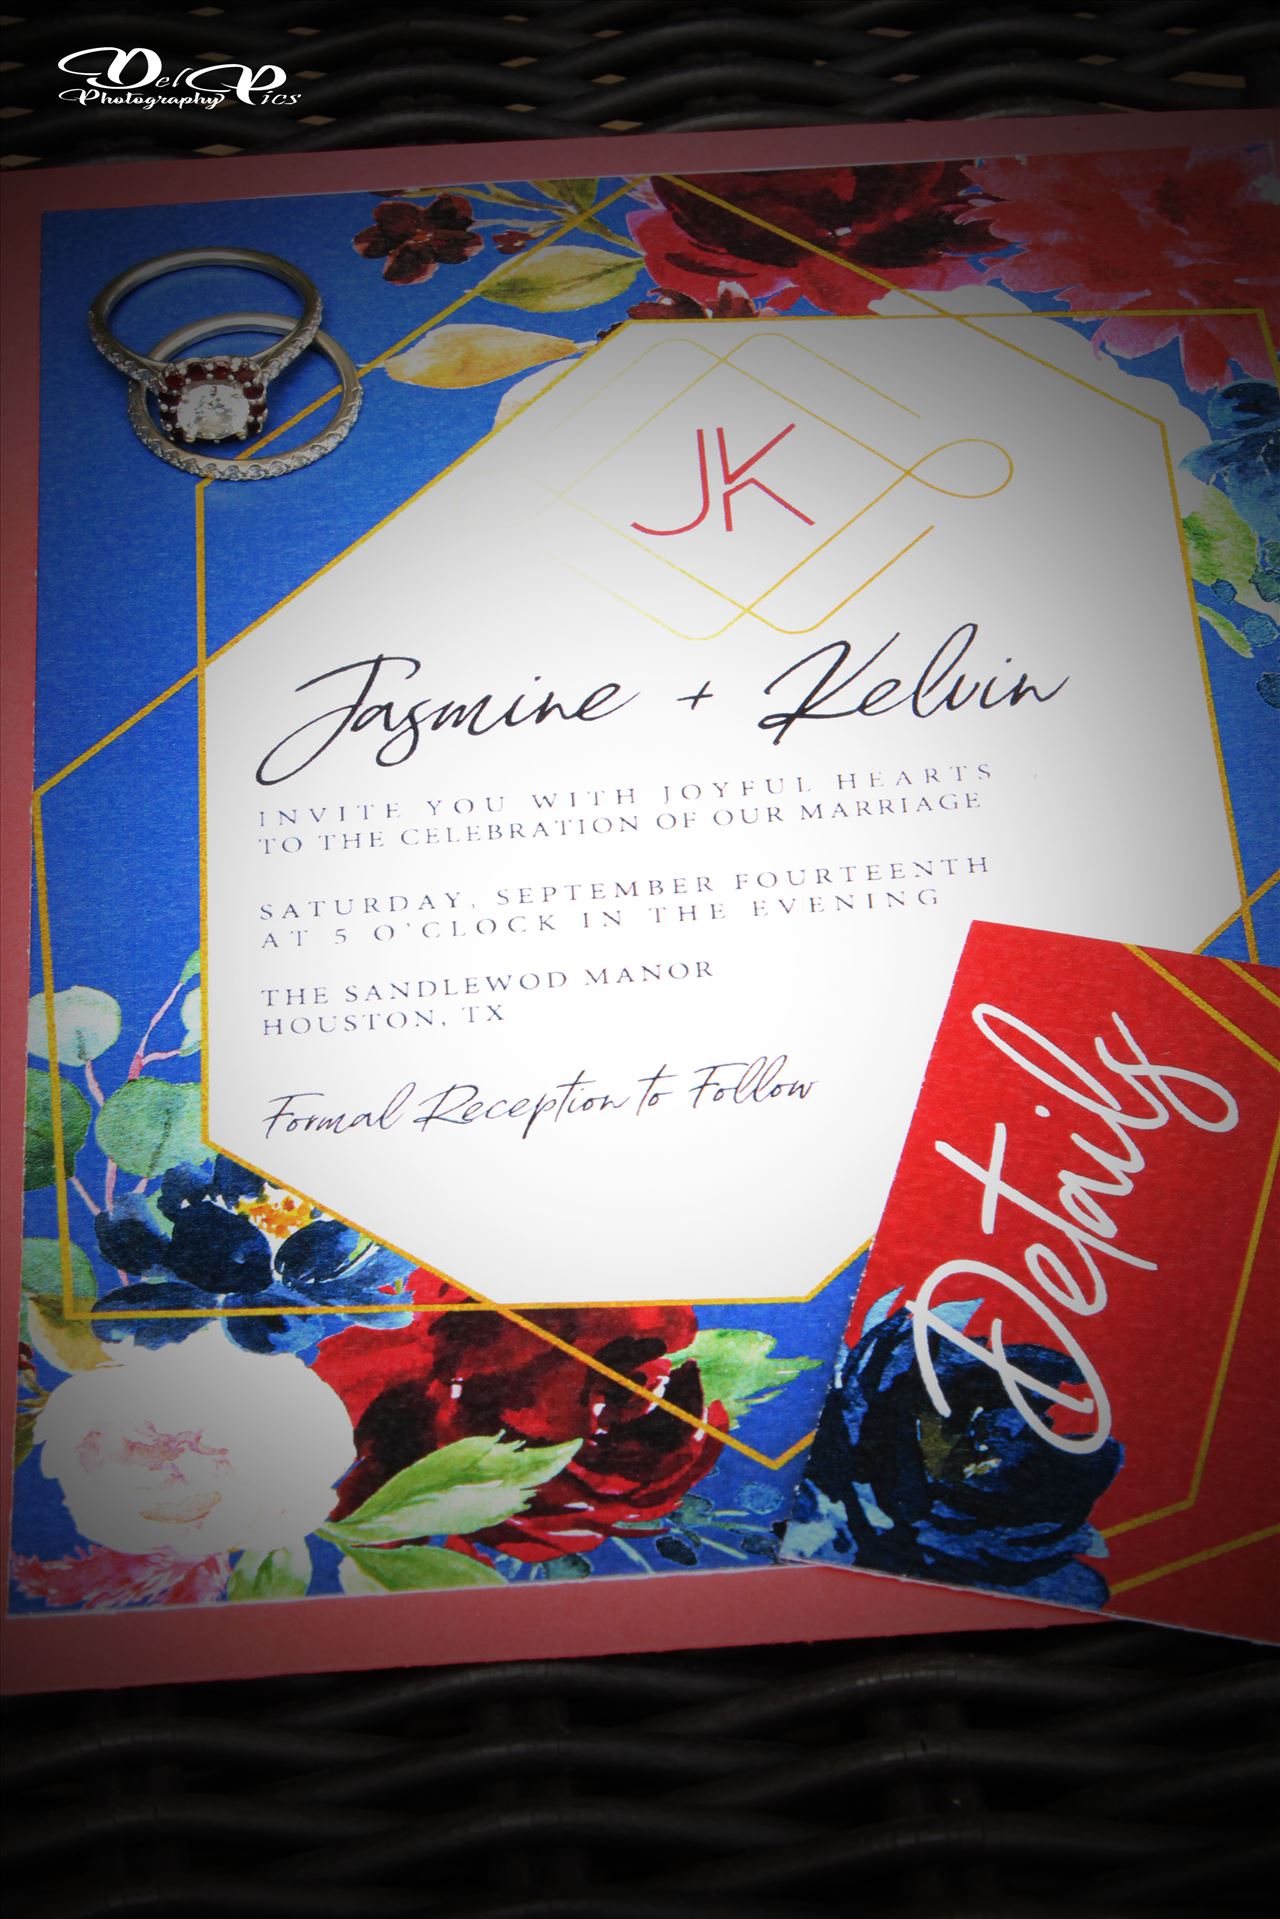 Del Pics
Photography
JK
Jasmine + Kelvin
INVITE YOU WITH JOYFUL HEARTS
TO THE CELEBRATION OF OUR MARRIAGE
SATURDAY, SEPTEMBER FOURTEENTH
AT 5 O'CLOCK IN THE EVENING
THE SANDLEWOD MANOR
HOUSTON, TX
Formal Reception to Follow
Details